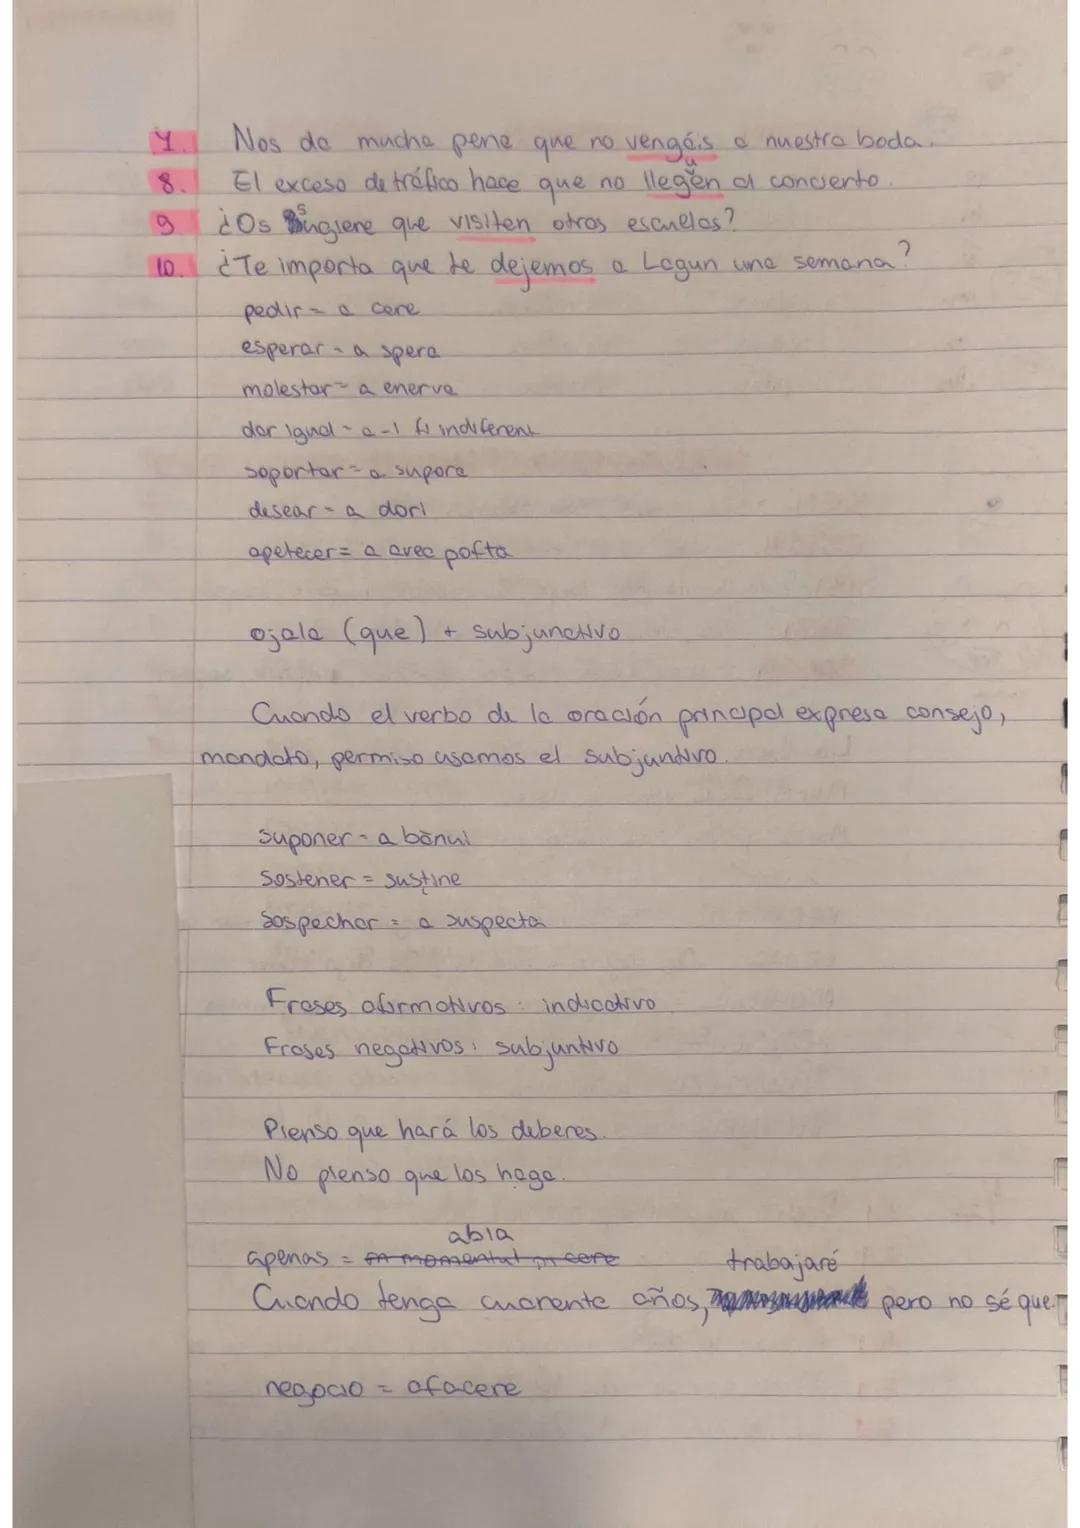 7. Nos da mucha pena que no vengáis a nuestra boda.
8. El exceso de tráfico hace que no lleguen al concierto.
9 ¿Os sugiere que visiten otras escuelas?
10. ¿Te importa que te dejemos a Lagun una semana?
pedir = a cere
esperar = a spera
molestar = a enerva
dar igual = a-i fi indiferent
soportar = a supora
desear = a dori
apetecer = a avea pofta
ojala (que) + subjunctivo
Cuando el verbo de la oración principal expresa consejo,
mandato, permiso usamos el subjuntivo.
suponer = a bănui
sostener = susține
sospechar = a suspecta
Frases afirmativas: indicativo
Frases negativas: subjuntivo
Pienso que hará los deberes.
No pienso que los haga.
abia
apenas = în momentul în care
trabajaré
Cuando tenga cuarenta años, pero no sé que
negocio = afacere